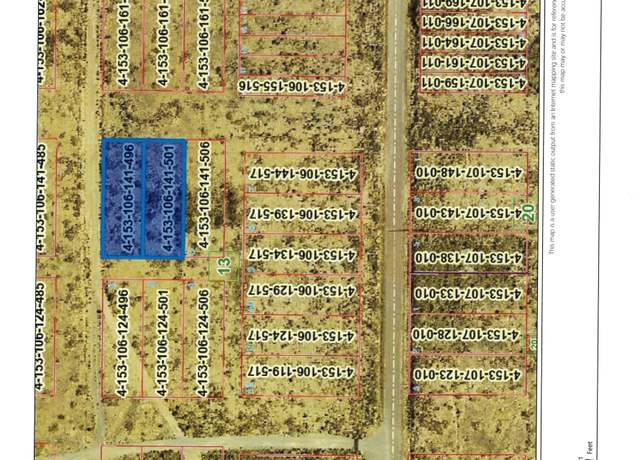 4-153-106-162
4-153-106-161-
4-153-106-161-
4-153-106-161-5
4-153-106-155-516
4-153-107-169-011
4-153-107-166-011
4-153-107-164-011
4-153-107-161-011
4-153-107-159-011
4-153-106-141-485
4-153-106-141-496
4-153-106-141-501
4-153-106-141-506
4-153-106-144-517
4-153-106-139-517
4-153-106-134-517
4-153-106-129-517
4-153-106-124-517
4-153-106-119-517
4-153-107-148-010
4-153-107-143-010
4-153-107-138-010
4-153-107-133-010
4-153-107-128-010
4-153-107-123-010
4-153-106-124-485
4-153-106-124-496
4-153-106-124-501
4-153-106-124-506
13
20
20
This map is a user generated static output from an Internet mapping site and is for referen
this map may or may not be accu
Feet